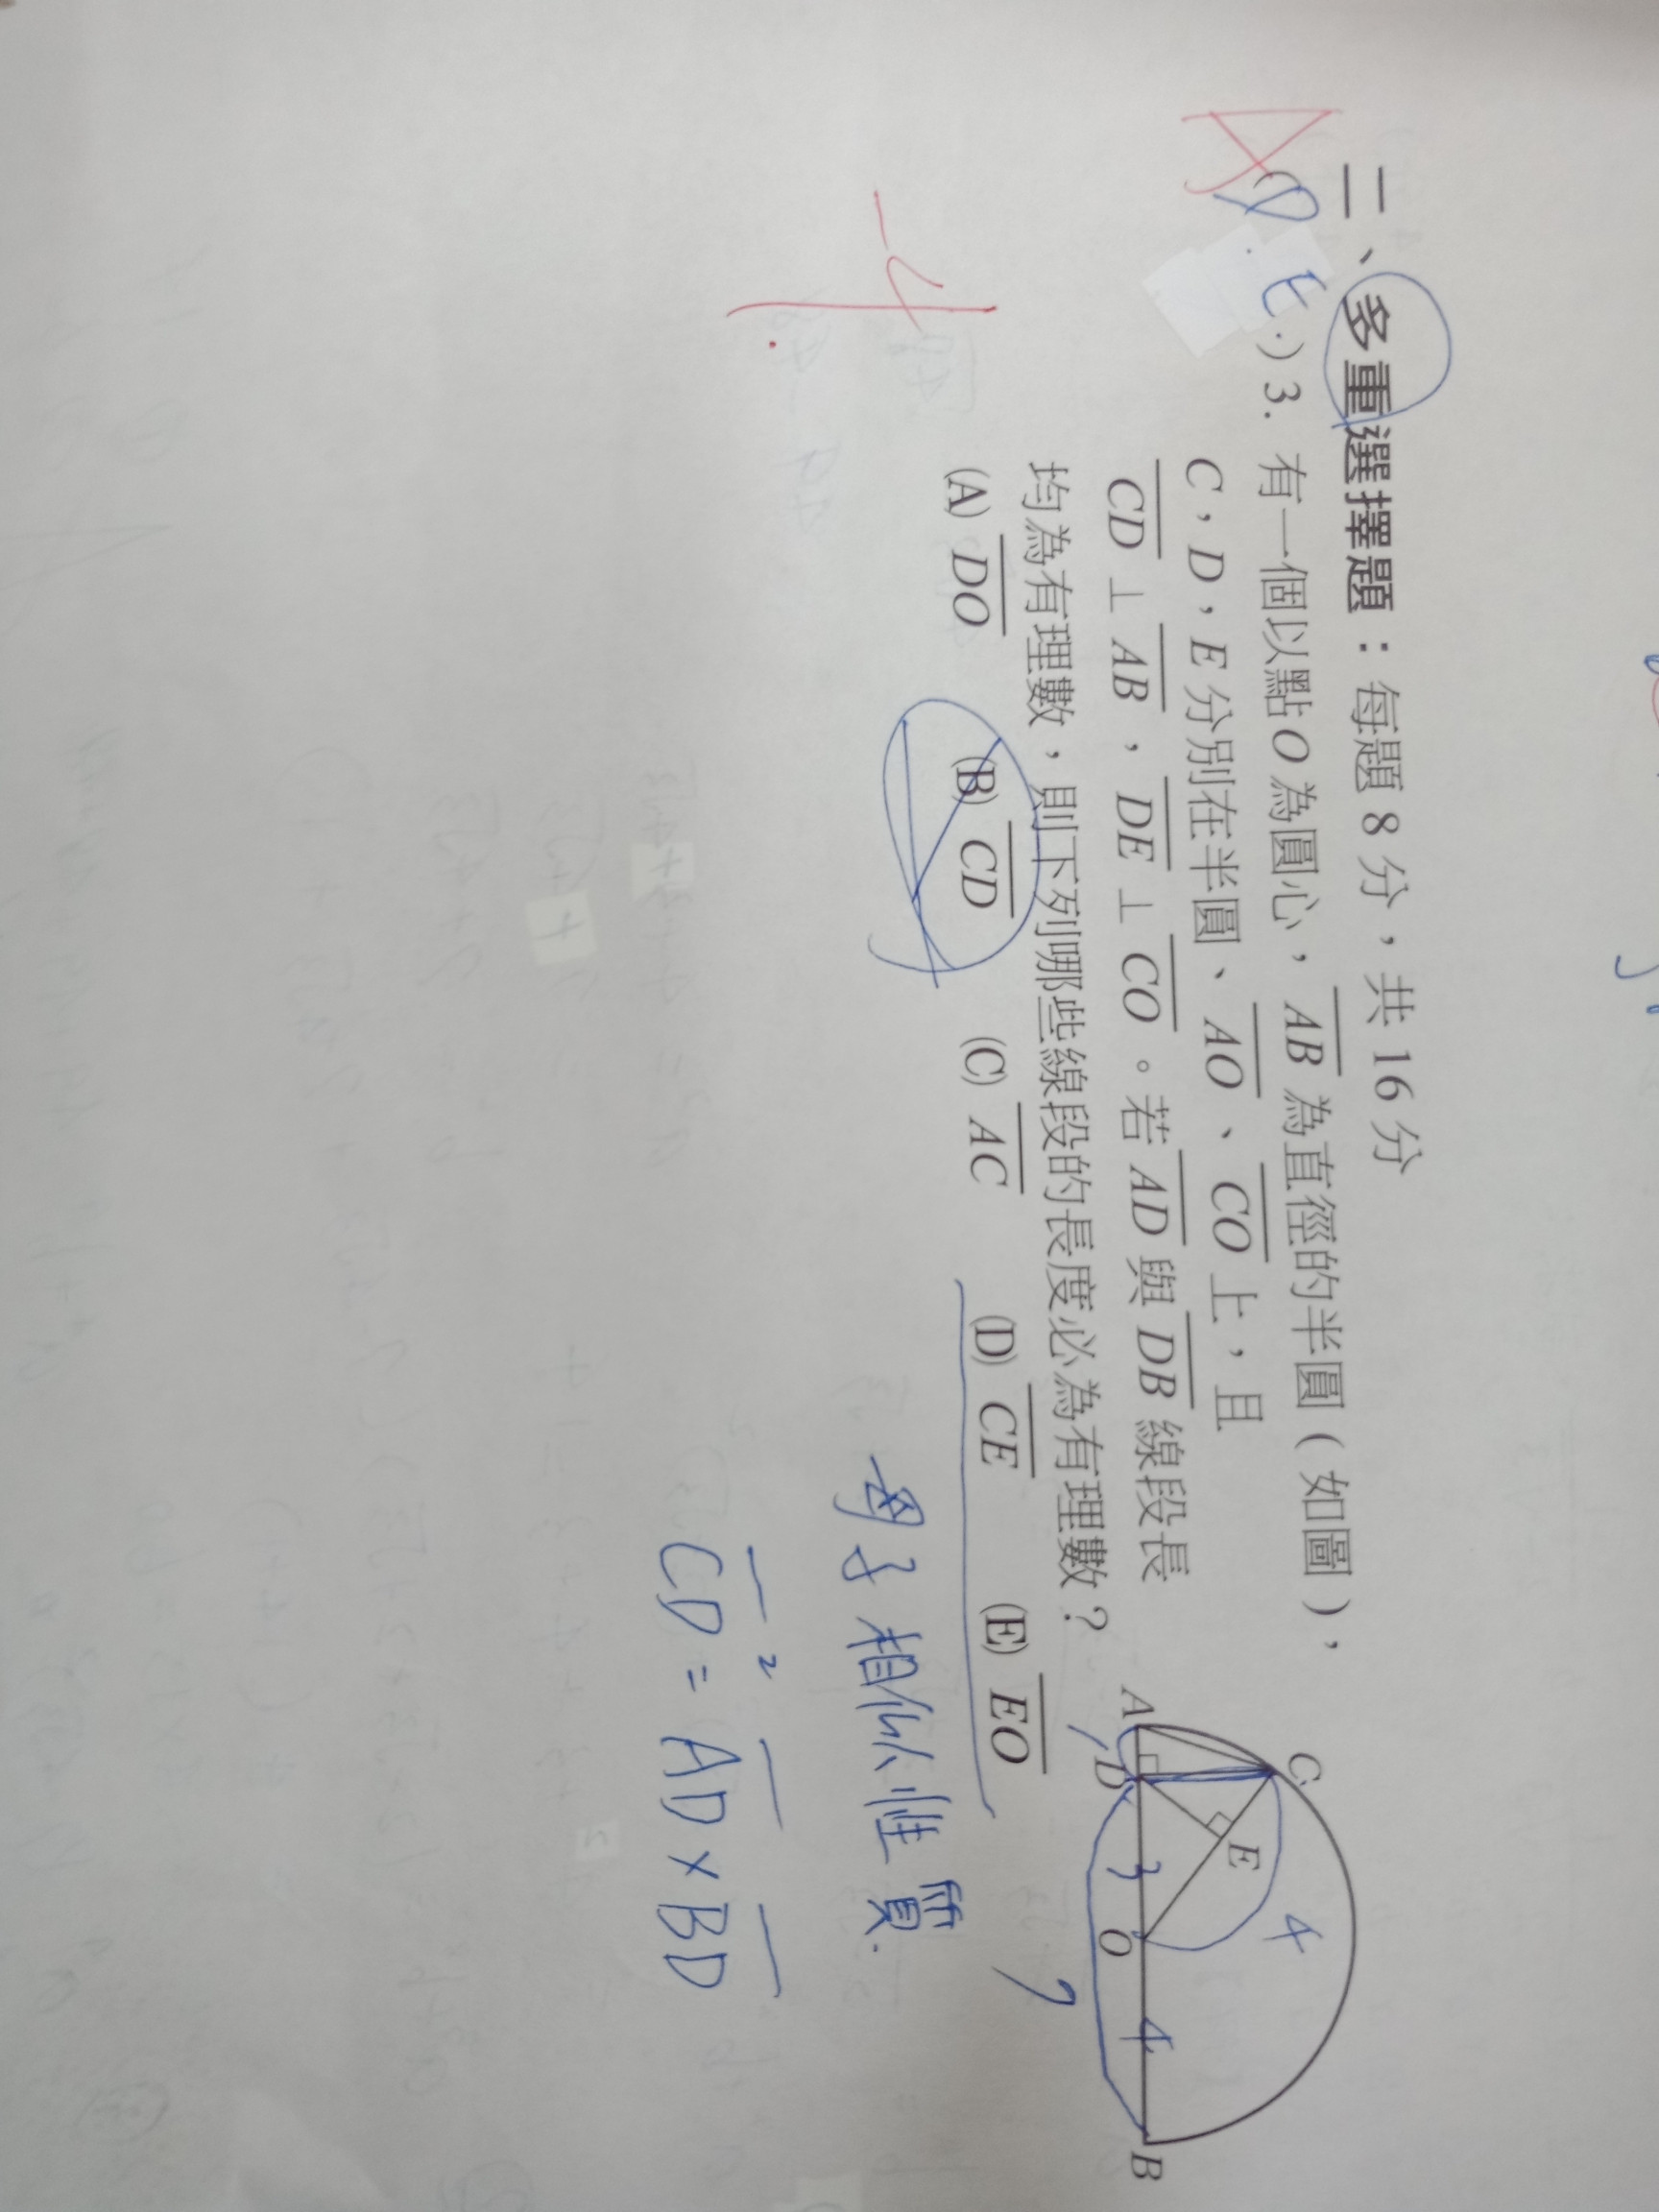 二、多重選擇題：每題 8 分，共 16 分
( . E . ) 3. 有一個以點O為圓心，AB為直徑的半圓（如圖），
C，D，E分別在半圓、AO、CO上，且
CD⊥AB，DE⊥CO。若AD與DB線段長
均為有理數，則下列哪些線段的長度必為有理數？
(A) DO (B) CD (C) AC (D) CE (E) EO
A
C
D
E
O
B
3
4
4
7
-4
母子相似性質.
CD² = AD × BD